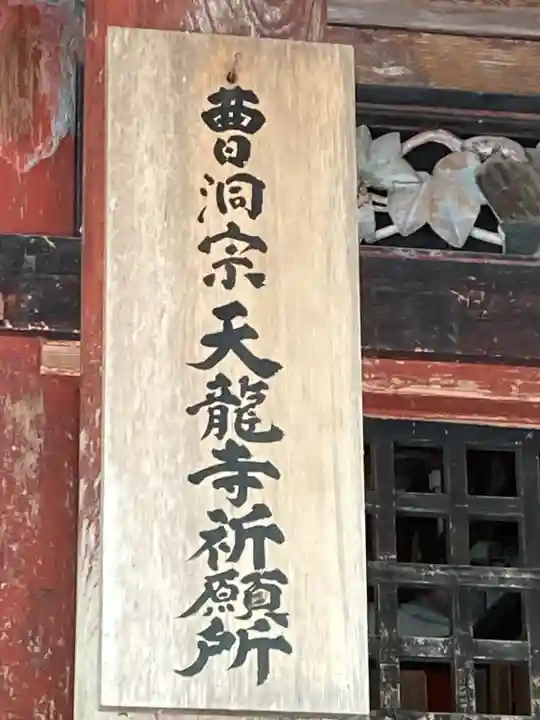 曹洞宗天龍寺祈願所